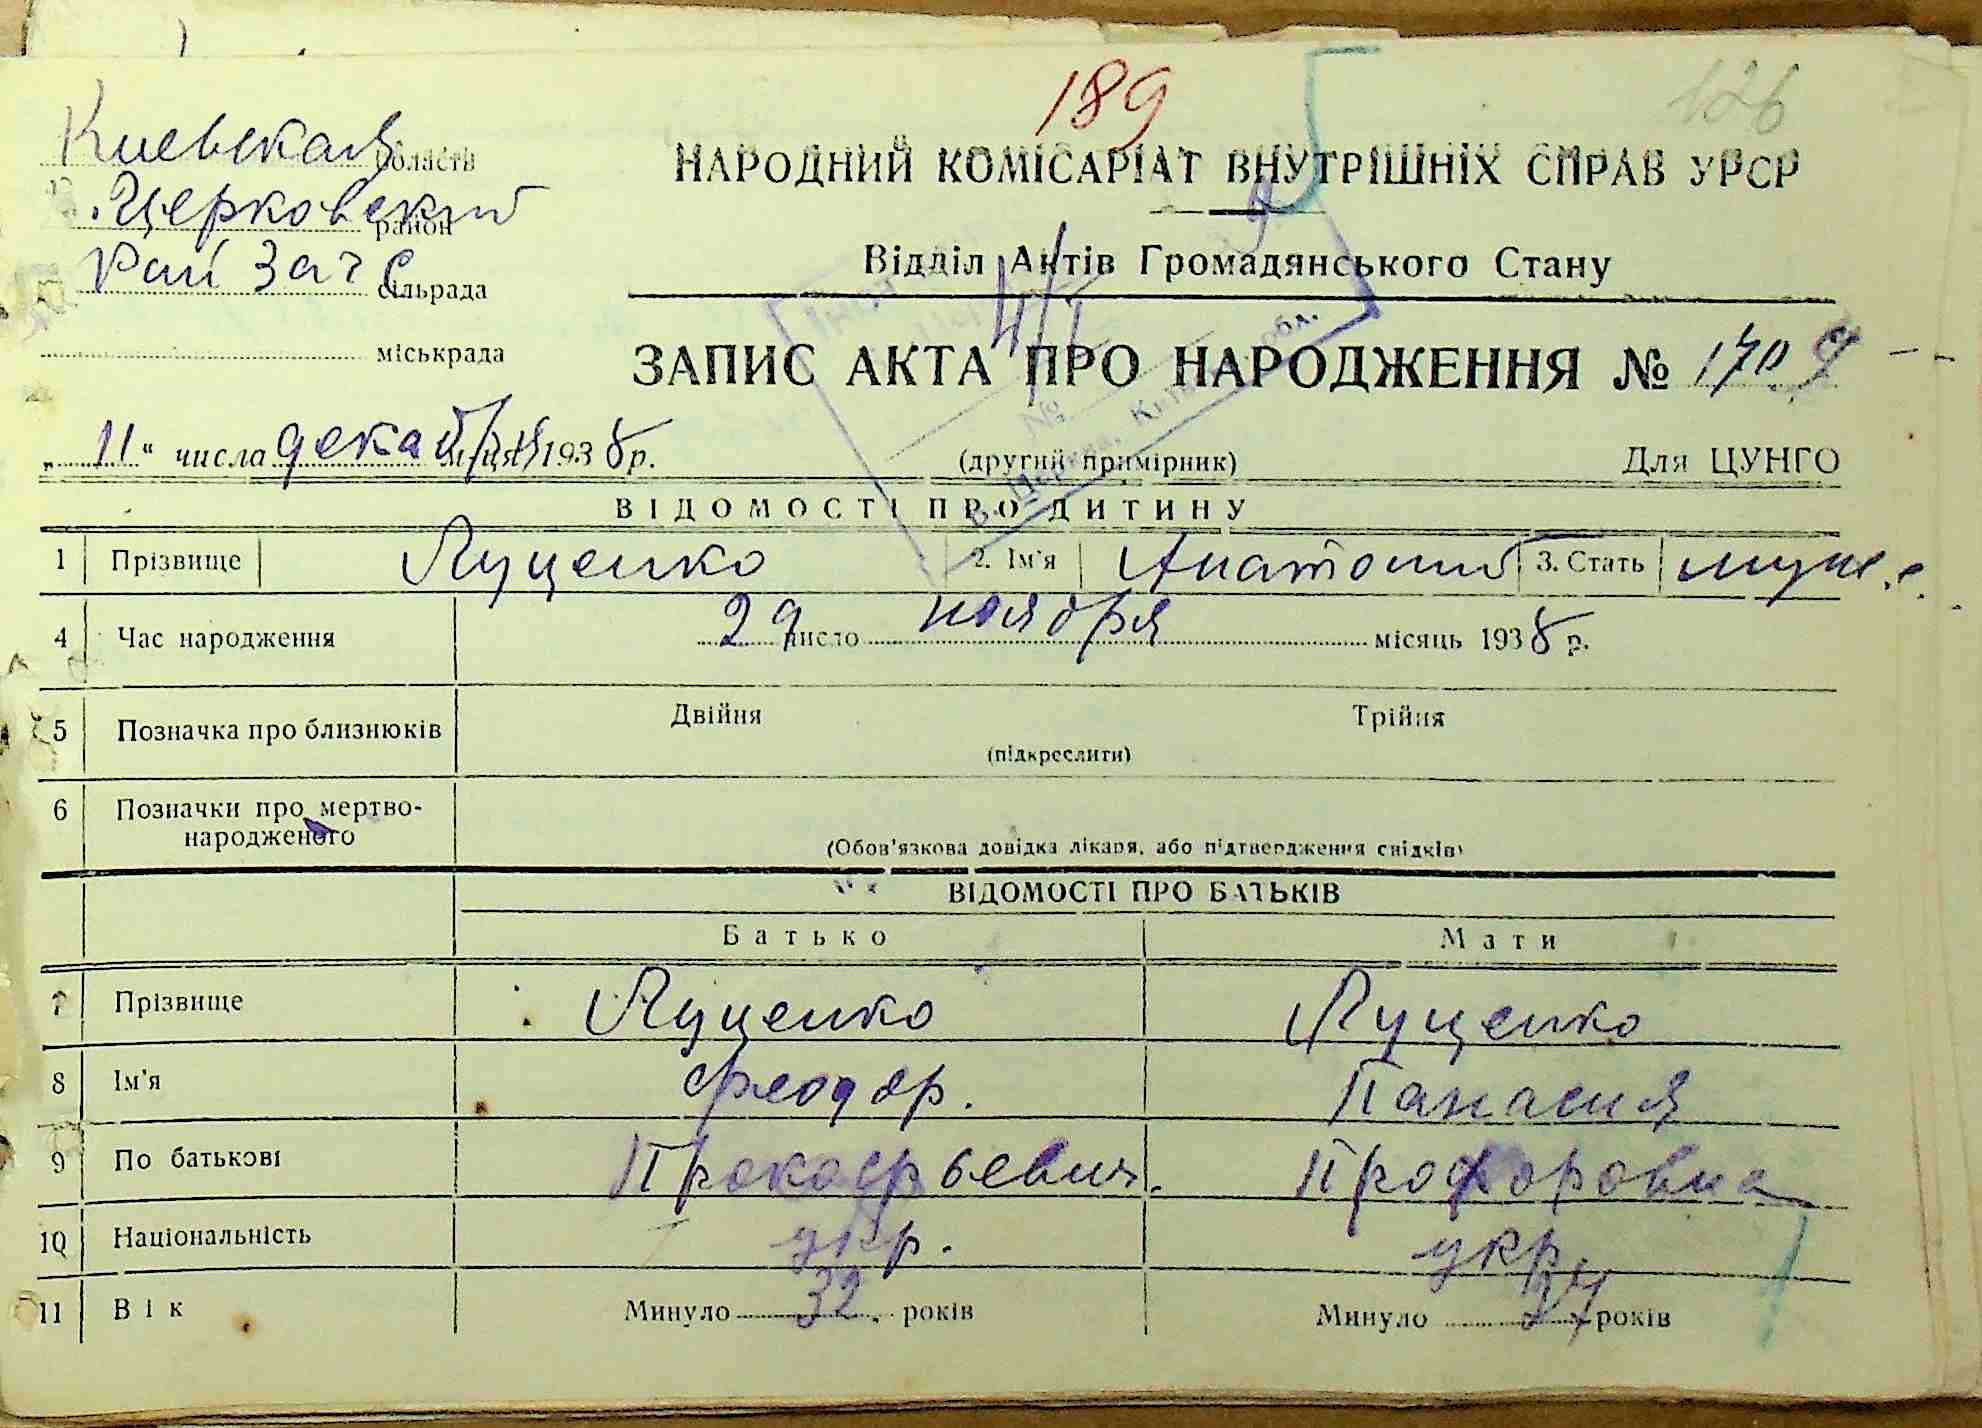 189
126
Киевская область
Б. Церковский район
Рай Загс сільрада
міськрада
НАРОДНИЙ КОМІСАРІАТ ВНУТРІШНІХ СПРАВ УРСР
Відділ Актів Громадянського Стану
ЗАПИС АКТА ПРО НАРОДЖЕННЯ № 1709
„11“ числа декабря місяця 1938 р.
(другий примірник)
Для ЦУНГО
ВІДОМОСТІ ПРО ДИТИНУ
1 Прізвище Луценко 2. Ім'я Анатолий 3. Стать муж.
4 Час народження 29 число ноября місяць 1938 р.
5 Позначка про близнюків Двійня Трійня
(підкреслити)
6 Позначки про мертво-
народженого
(Обов'язкова довідка лікаря, або підтвердження свідків)
ВІДОМОСТІ ПРО БАТЬКІВ
Батько Мати
7 Прізвище Луценко Луценко
8 Ім'я Феодор. Панасия
9 По батькові Прокофьевич. Профоровна
10 Національність укр. укр.
11 Вік Минуло 32. років Минуло років